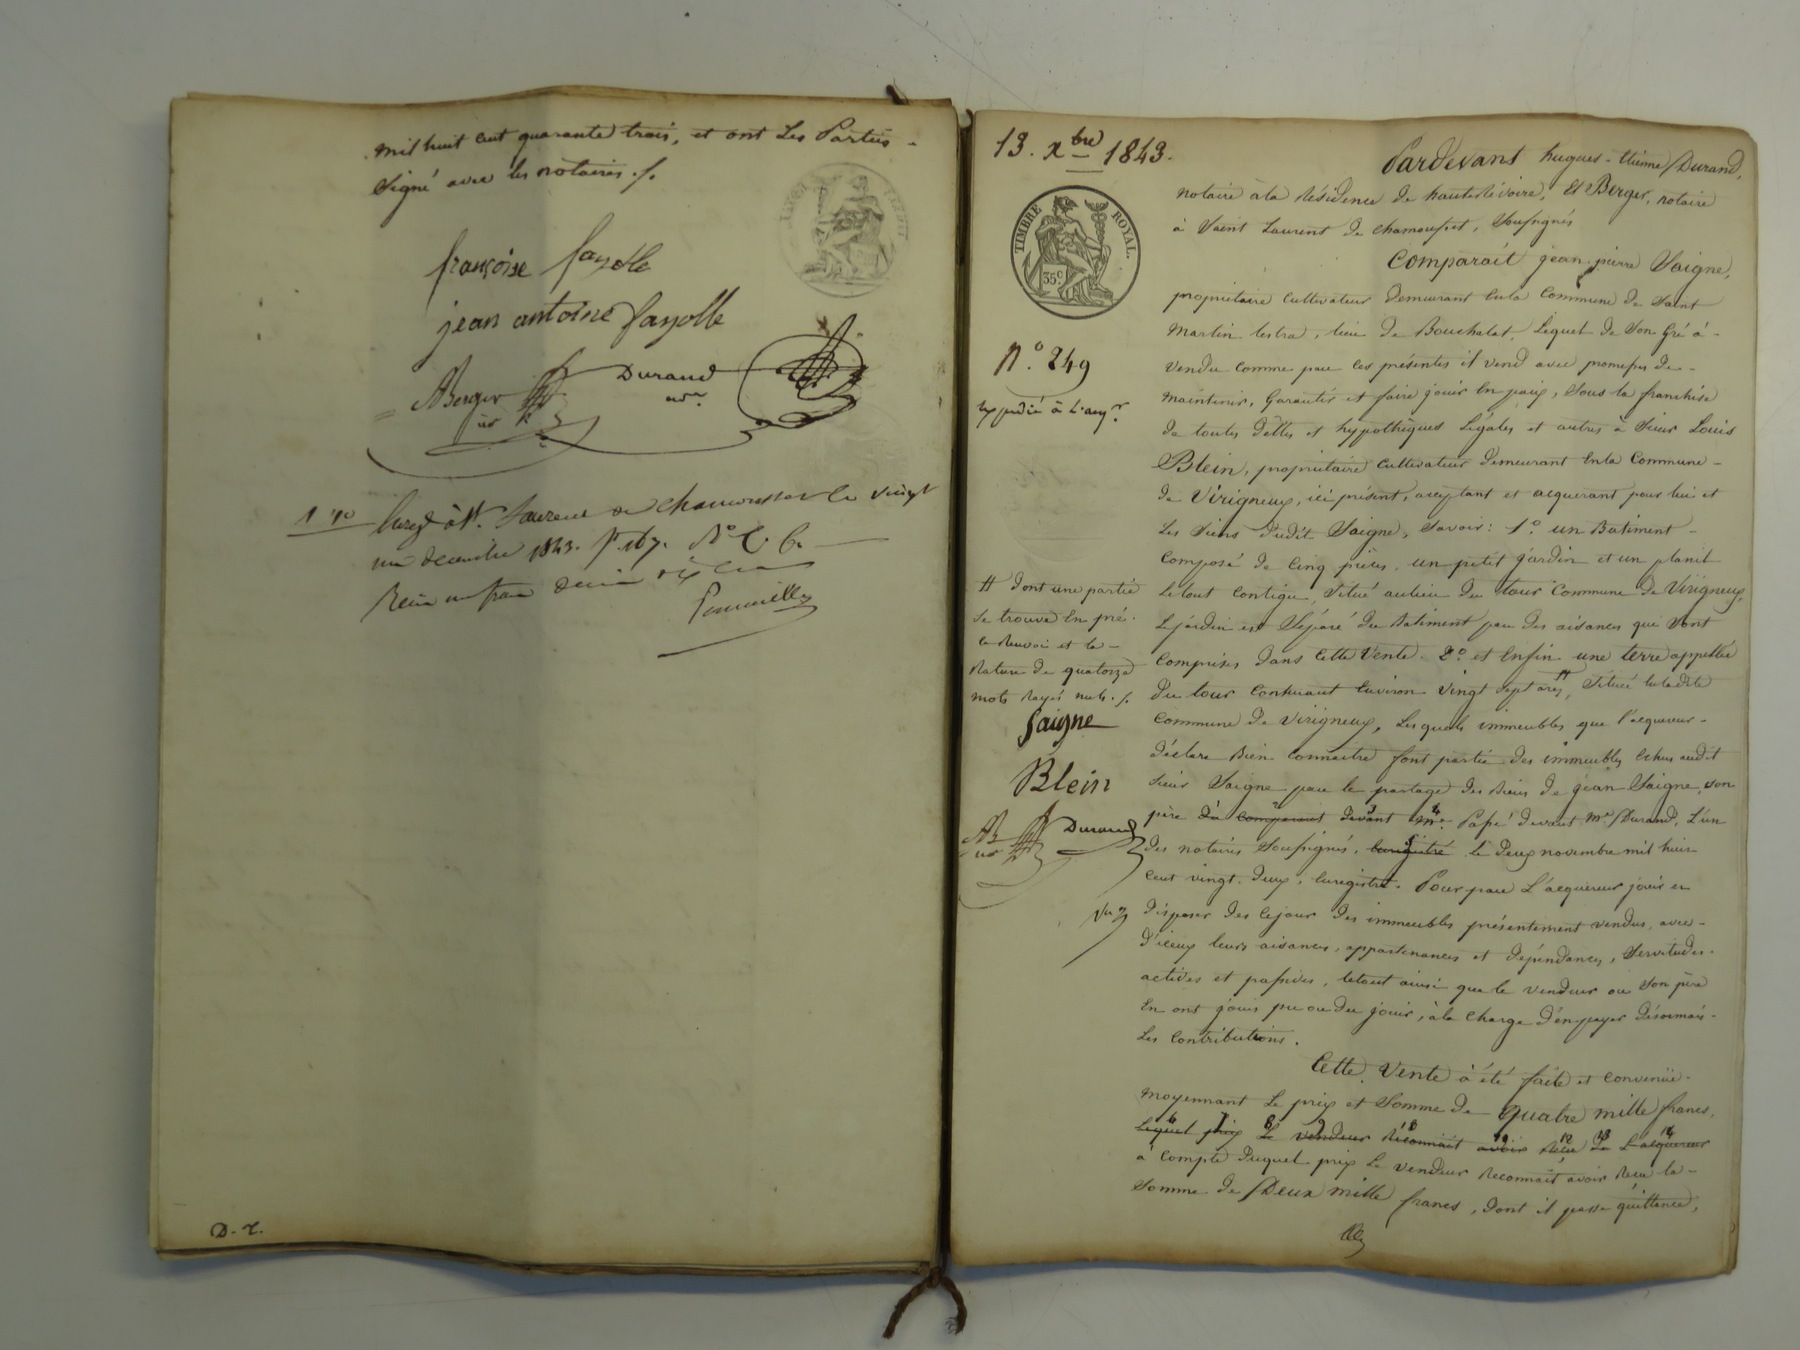 mil huit cent quarante trois, et ont les Parties -
signé avec les notaires ./.
françoise fayolle
jean antoine fayolle
ABerger Durand
nre
1 f 10 Enregé à St. Laurent de chamousset le vingt
un decembre 1843. fo. 167. Ro C. 6.
Recu un franc decime dix cmes
D. T.
13. xbre 1843.
Pardevant hugues-Etienne Durand,
notaire à la Résidence de hauterivoire, Et Berger, notaire
à Saint Laurent de chamousset, soussignés
TIMBRE ROYAL.
35c.
Comparait jean-pierre Saigne,
propriétaire cultivateur demeurant en la Commune de Saint
Martin lestra, lieu de Bouchalat, Lequel de son gré à -
vendu comme par ces présentes il vend avec promesse de -
N.o 249
maintenir, Garantir et faire jouir en paix, sous la franchise
Expédié à l'acqr.
de toutes dettes et hypothèques légales et autres à sieur Louis
Blein, propriétaire cultivateur demeurant en la Commune -
de Virigneux, ici présent, acceptant et acquerant pour lui et
les siens dudit Saigne, savoir: 1.o un Batiment -
composé de cinq pièces, un petit jardin et un
# dont une partie
se trouve en pré.
le renvoi et la -
rature de quatorze
mots rayés nuls ./.
Saigne
Blein
AB Durand
nre
le tout contigu, situé au lieu du tour Commune de Virigneux,
Le jardin est séparé du Batiment par des aisances qui sont
comprises dans cette vente. 2.o et enfin une terre appellée
du tour contenant environ vingt sept ares #, située en la dite
commune de Virigneux, Lesquels immeubles que l'acquereur -
déclare bien connaitre font partie des immeubles échus audit
sieur Saigne par le partage des biens de jean Saigne, son
père du comparant devant me. Passé devant me Durand, L'un
des notaires soussignés, enregistré le deux novembre mil huit
cent vingt-deux, enregistré. Pour par L'acquereur jouir et
disposer dès ce jour des immeubles présentement vendus, avec -
d'iceux leurs aisances, appartenances et dépendances, servitudes -
actives et passives, le tout ainsi que le vendeur ou son père
en ont joui pu ou du jouir, à la charge d'en payer désormais -
les contributions.
Cette vente à été faite et convenüe -
moyennant Le prix et somme de quatre mille francs,
Lequel prix Le vendeur reconnait avoir reçu de L'acquereur
à compte duquel prix le vendeur reconnait avoir recu la -
somme de Deux mille francs, dont il passe quittance,